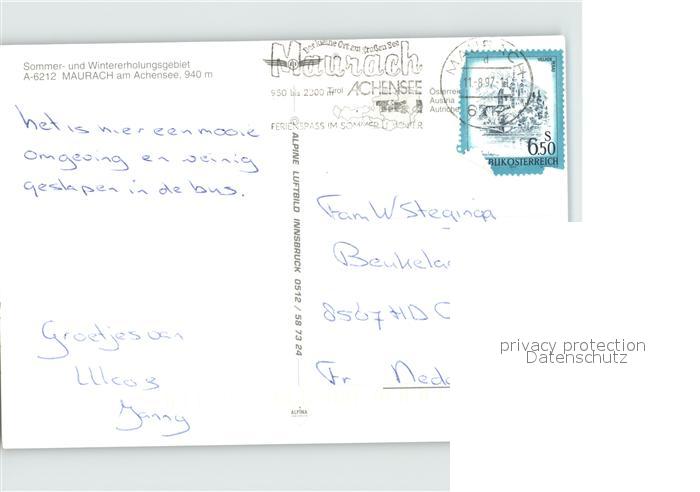 Sommer- und Wintererholungsgebiet
A-6212 MAURACH am Achensee, 940 m
Der kleine Ort am großen See
Maurach
950 bis 2300 Tirol ACHENSEE
FERIENSPASS IM SOMMER U. WINTER
MAURACH
11.-8.97
6212
Österreich
Austria
Autriche
S
6.50
REPUBLIK ÖSTERREICH
het is hier een mooie
omgeving en weinig
geslapen in de bus.
Groetjes van
Janny
© ALPINE LUFTBILD INNSBRUCK 0512 / 58 73 24
ALPINA
Fam W Steginga
Beukela
8567 HD
Fr Nede
privacy protection
Datenschutz